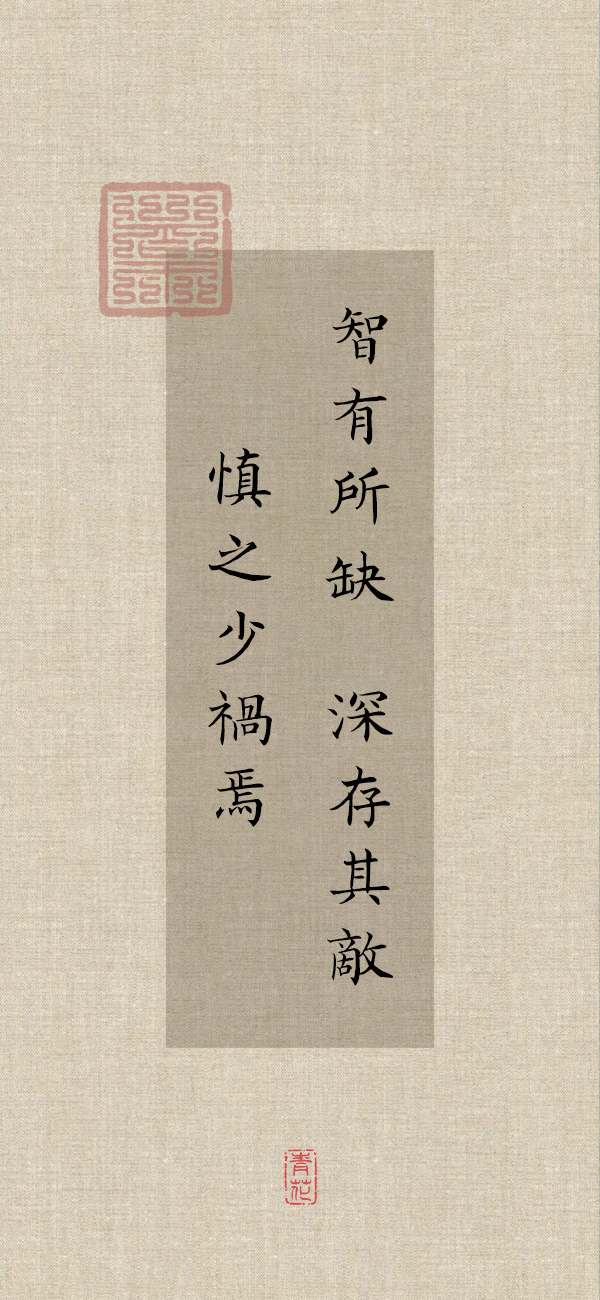 智有所缺 深存其敵
慎之少禍焉
青花